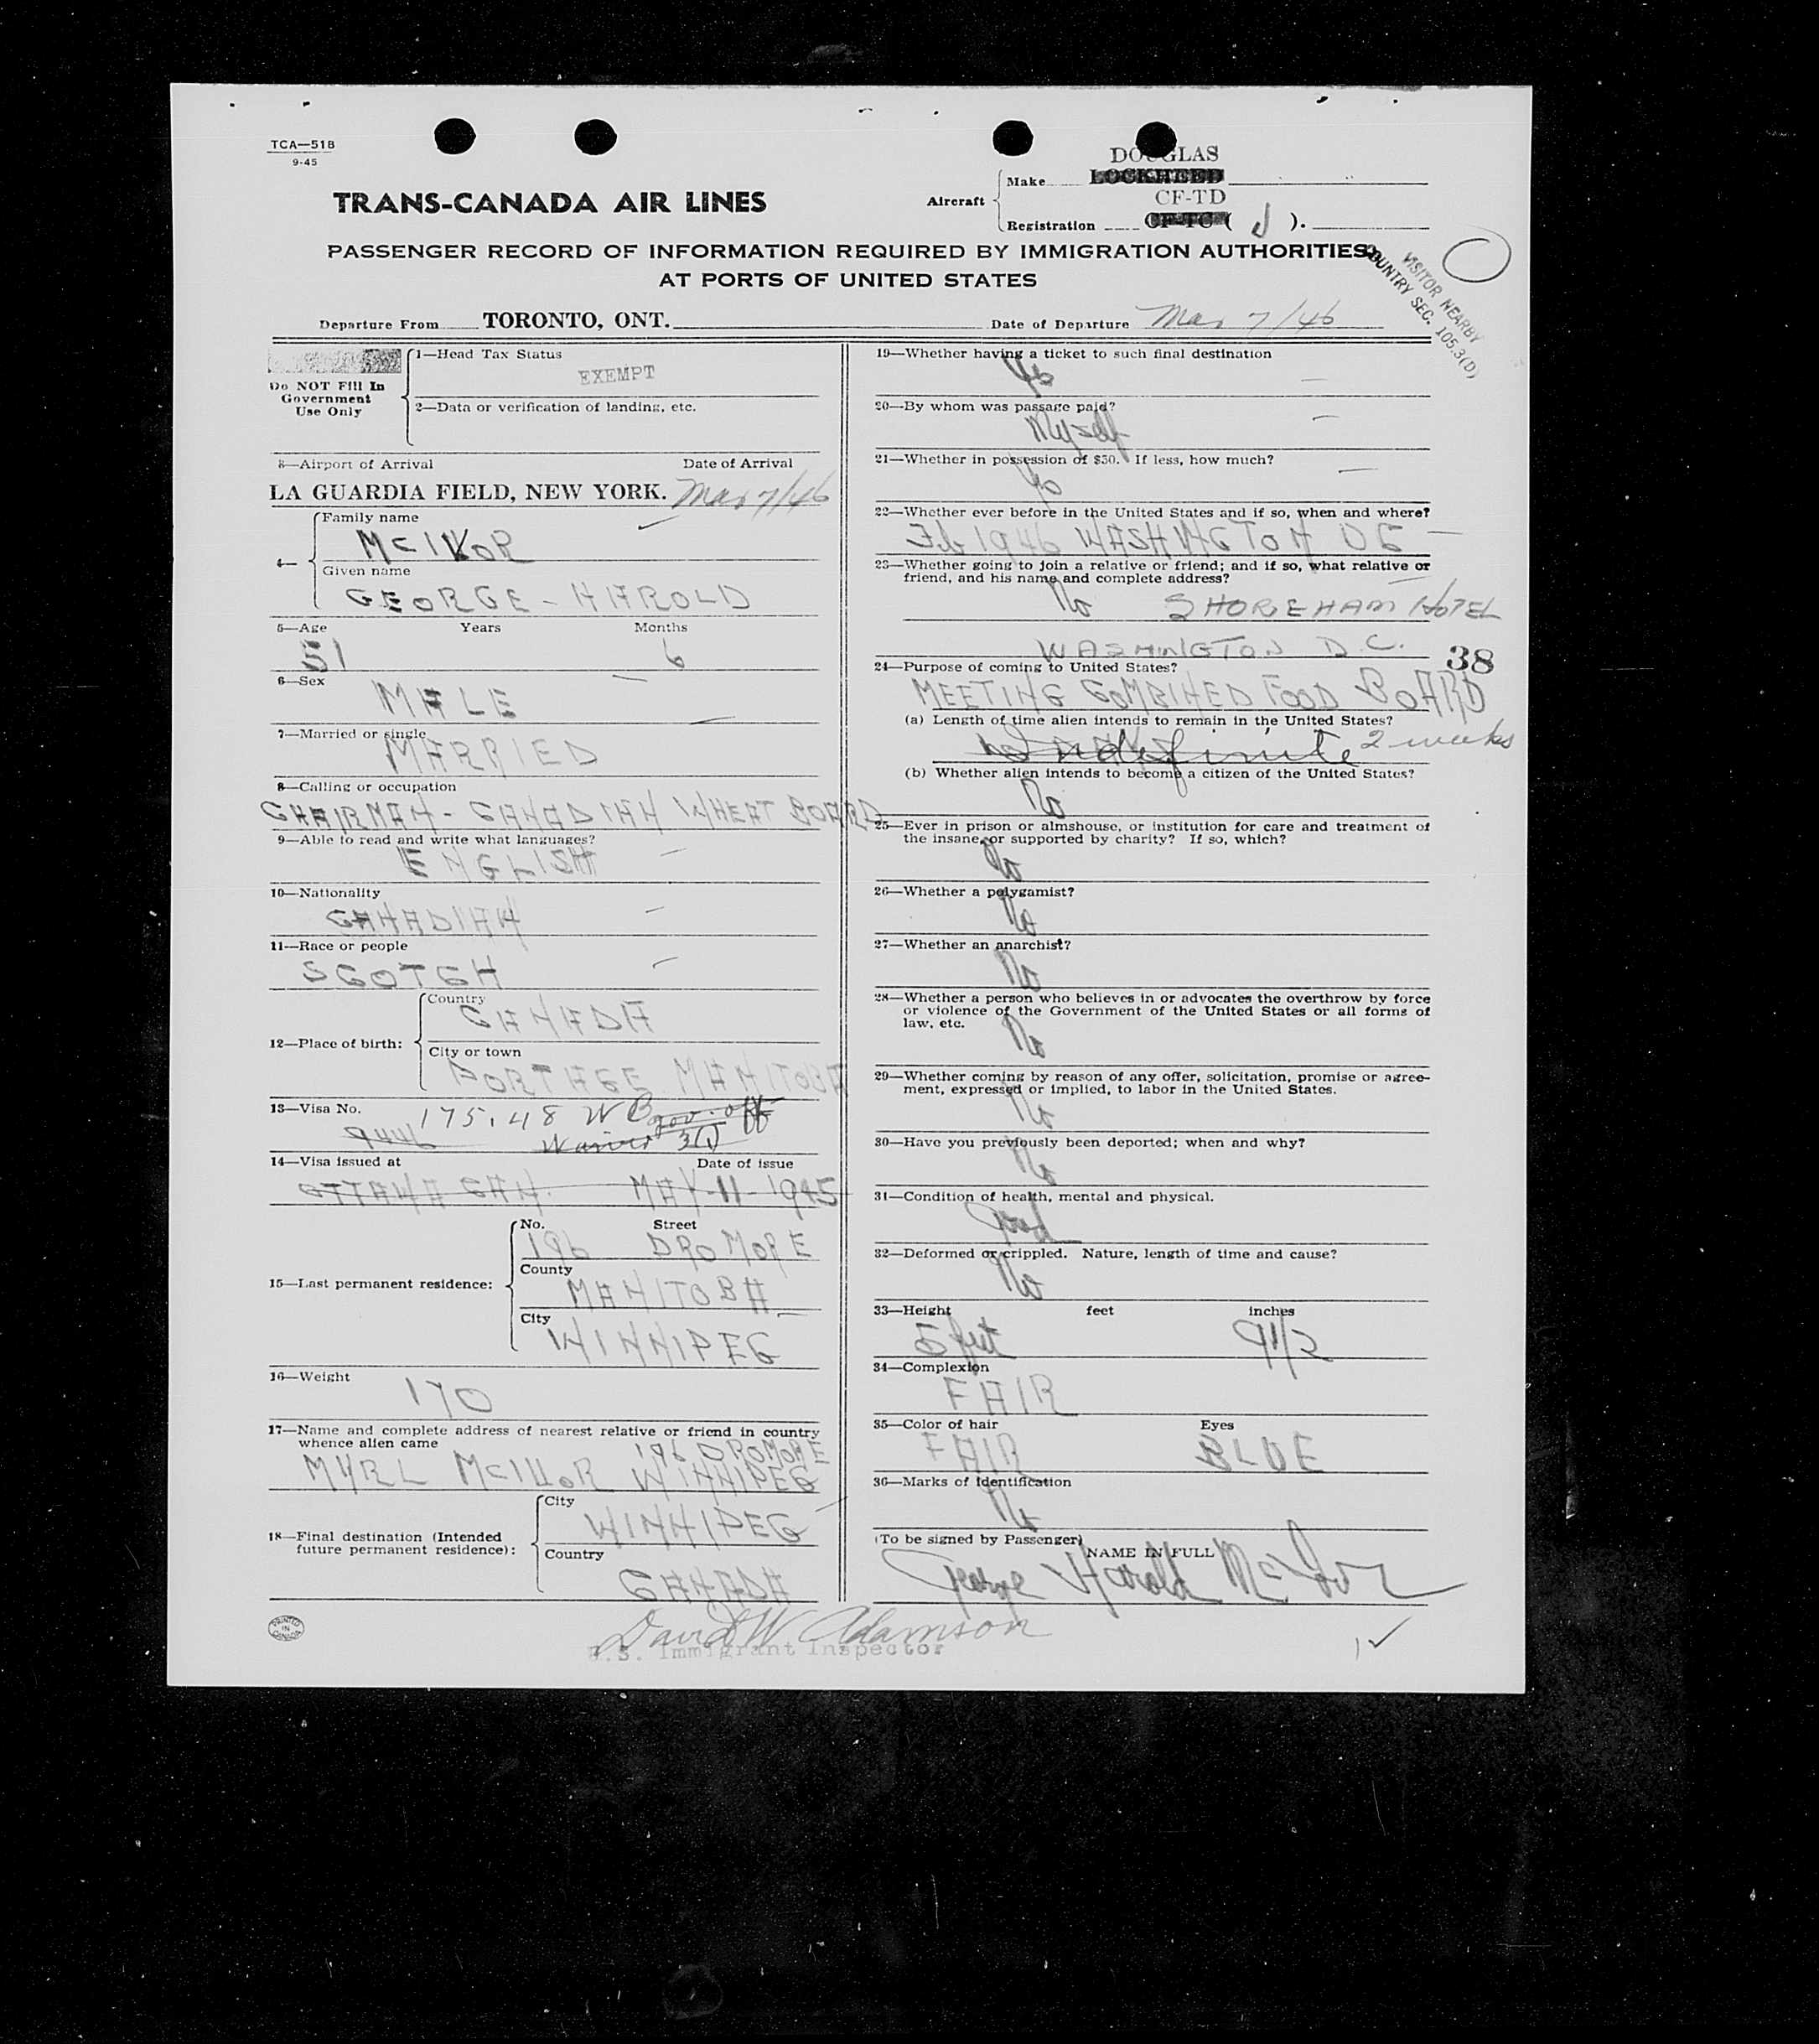 TCA—518
9-45
DOUGLAS
Aircraft
Make LOCKHEED
CF-TD
Registration CF-TC ( J ).
TRANS-CANADA AIR LINES
PASSENGER RECORD OF INFORMATION REQUIRED BY IMMIGRATION AUTHORITIES
AT PORTS OF UNITED STATES
VISITOR NEARBY
COUNTRY SEC. 105.3(D)
Departure From TORONTO, ONT. Date of Departure Mar 7/46
Do NOT Fill In
Government
Use Only
1—Head Tax Status
EXEMPT
2—Data or verification of landing, etc.
3—Airport of Arrival Date of Arrival
LA GUARDIA FIELD, NEW YORK. Mar 7/46
4—
Family name
McIVOR
Given name
GEORGE - HAROLD
5—Age Years Months
51 6
6—Sex
MALE
7—Married or single
MARRIED
8—Calling or occupation
CHAIRMAN - CANADIAN WHEAT BOARD
9—Able to read and write what languages?
ENGLISH
10—Nationality
CANADIAN
11—Race or people
SCOTCH
12—Place of birth:
Country
CANADA
City or town
PORTAGE MANITOBA
13—Visa No. 175.48 WB gov. off
9446 Waiver 3(1)
14—Visa issued at Date of issue
OTTAWA CAN. MAY-11-1945
15—Last permanent residence:
No. Street
196 DROMORE
County
MANITOBA
City
WINNIPEG
16—Weight
170
17—Name and complete address of nearest relative or friend in country
whence alien came
196 DROMORE
MYRL McIVOR WINNIPEG
18—Final destination (Intended
future permanent residence):
City
WINNIPEG
Country
CANADA
19—Whether having a ticket to such final destination
Yes
20—By whom was passage paid?
Myself
21—Whether in possession of $50. If less, how much?
Yes
22—Whether ever before in the United States and if so, when and where?
Feb 1946 WASHINGTON DC
23—Whether going to join a relative or friend; and if so, what relative or
friend, and his name and complete address?
No SHOREHAM HOTEL
WASHINGTON D.C.
38
24—Purpose of coming to United States?
MEETING COMBINED FOOD BOARD
(a) Length of time alien intends to remain in the United States?
Indefinite 2 weeks
(b) Whether alien intends to become a citizen of the United States?
No
25—Ever in prison or almshouse, or institution for care and treatment of
the insane, or supported by charity? If so, which?
No
26—Whether a polygamist?
No
27—Whether an anarchist?
No
28—Whether a person who believes in or advocates the overthrow by force
or violence of the Government of the United States or all forms of
law, etc.
No
29—Whether coming by reason of any offer, solicitation, promise or agree-
ment, expressed or implied, to labor in the United States.
No
30—Have you previously been deported; when and why?
No
31—Condition of health, mental and physical.
Good
32—Deformed or crippled. Nature, length of time and cause?
No
33—Height feet inches
5 feet 9 1/2
34—Complexion
FAIR
35—Color of hair Eyes
FAIR BLUE
36—Marks of identification
No
(To be signed by Passenger)
NAME IN FULL
George Harold McIvor
PRINTED IN CANADA
David W. Adamson
U.S. Immigrant Inspector